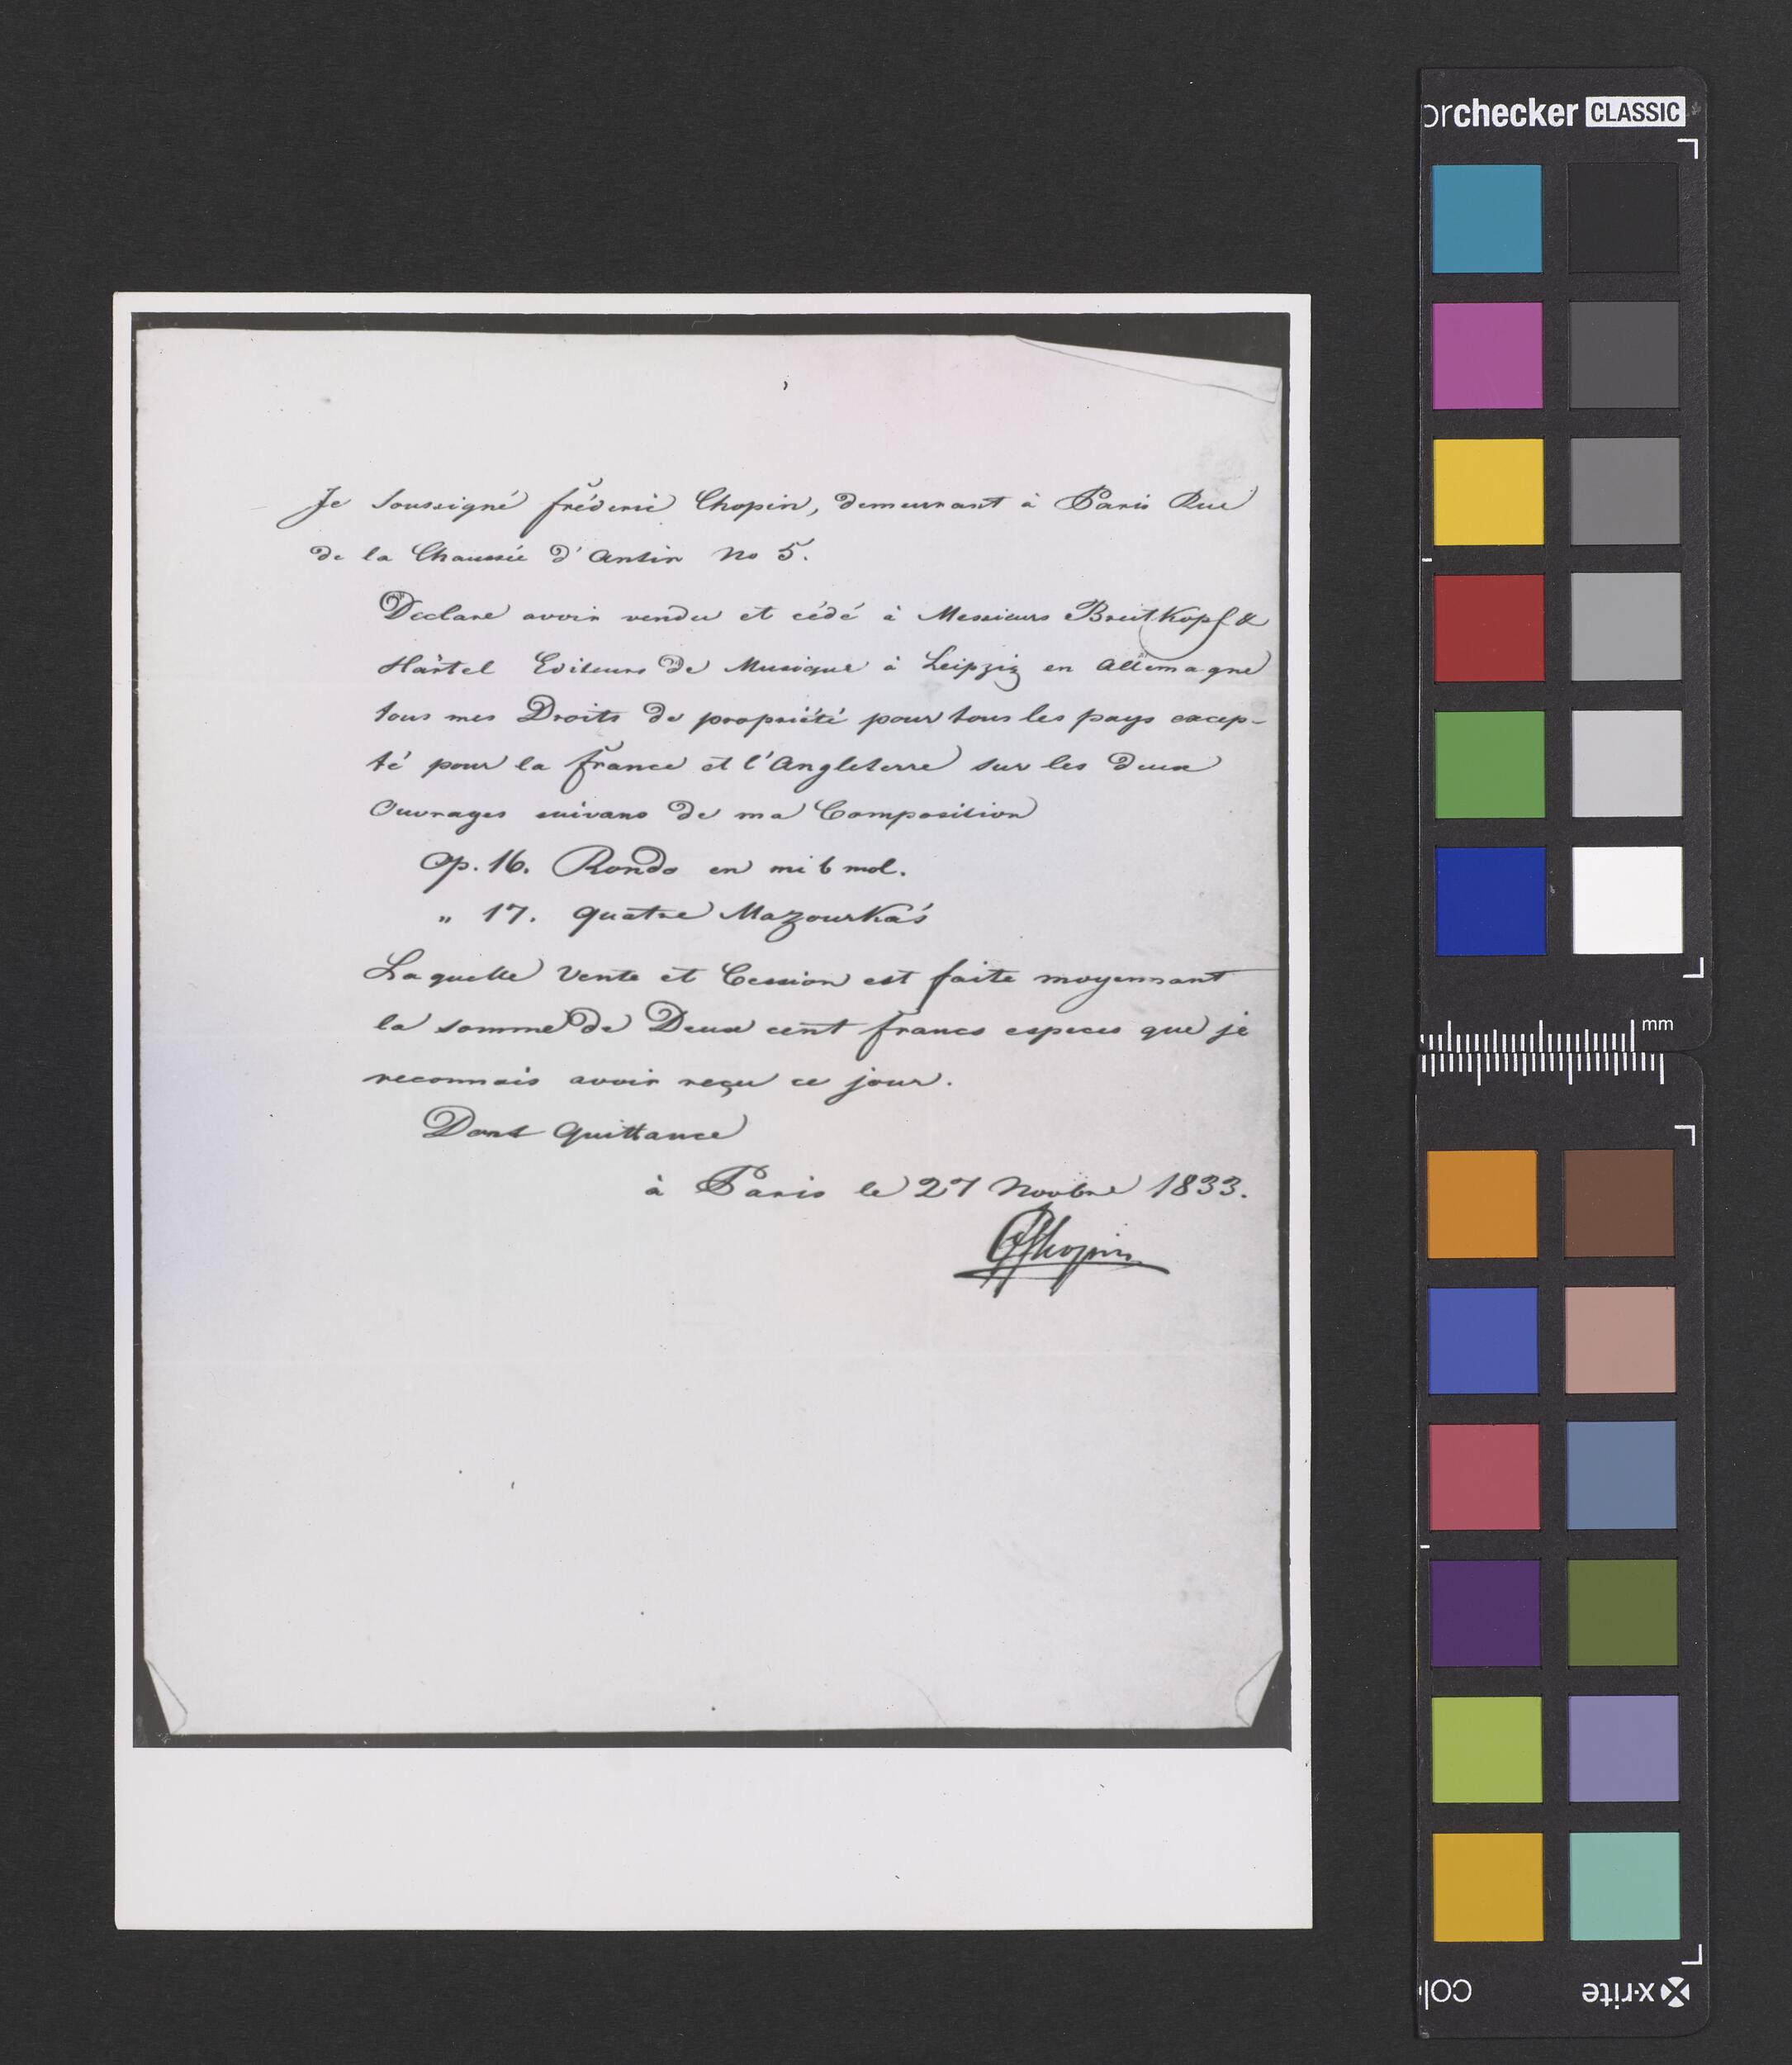 orchecker CLASSIC
Je soussigné fréderic Chopin, demeurant à Paris Rue
de la Chaussée d'Antin No 5.
Declare avoir vendu et cédé à Messieurs Breitkopf &
Härtel Editeurs de Musique à Leipzig en Allemagne
tous mes Droits de propriété pour tous les pays excep-
té pour la france et l'Angleterre sur les deux
Ouvrages suivans de ma Composition
Op. 16. Rondo en mi b mol.
" 17. quatre Mazourka's
Laquelle Vente et Cession est faite moyennant
la somme de Deux cent francs especes que je
reconnais avoir reçu ce jour.
Dont Quittance
à Paris le 27 Novbre 1833.
FChopin
mm
x-rite
colo